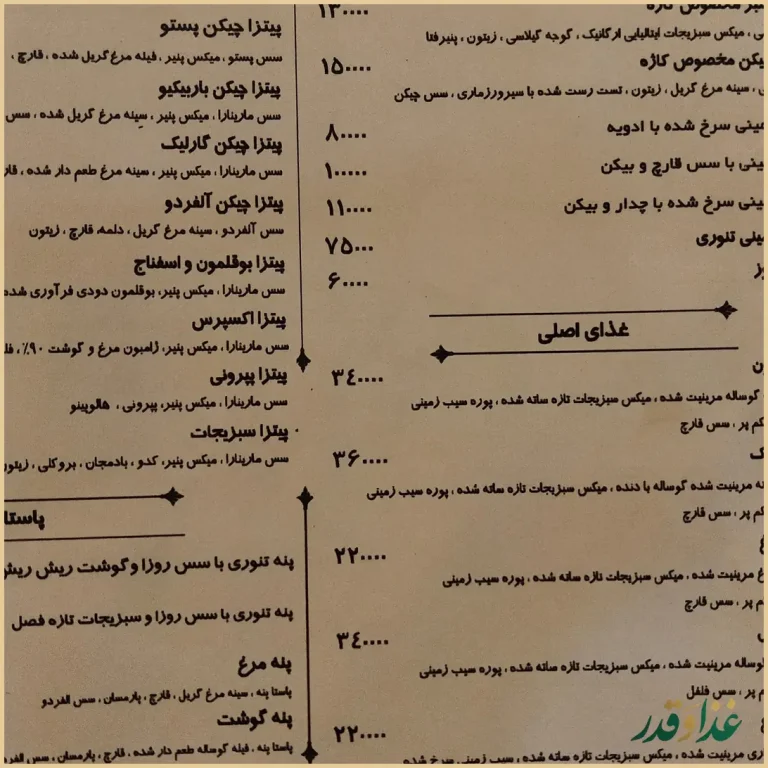 ۱۳۰۰۰۰
میکس سبزیجات ایتالیایی ارگانیک ، گوجه گیلاسی ، زیتون ، پنیرفتا
مخصوص کاژه
۱۵۰۰۰۰
سینه مرغ گریل ، زیتون ، تست رست شده با سیرورزماری ، سس چیکن
سرخ شده با ادویه
۸۰۰۰۰
با سس قارچ و بیکن
۱۰۰۰۰۰
سرخ شده با چدار و بیکن
۱۱۰۰۰۰
تنوری
۷۵۰۰۰
۶۰۰۰۰
غذای اصلی
۳۴۰۰۰۰
گوساله مرینیت شده ، میکس سبزیجات تازه ساته شده ، پوره سیب زمینی
پر ، سس قارچ
۳۶۰۰۰۰
مرینیت شده گوساله با دنده ، میکس سبزیجات تازه ساته شده ، پوره سیب زمینی
پر ، سس قارچ
۲۲۰۰۰۰
مرینیت شده ، میکس سبزیجات تازه ساته شده ، پوره سیب زمینی
پر ، سس قارچ
۳۴۰۰۰۰
گوساله مرینیت شده ، میکس سبزیجات تازه ساته شده ، پوره سیب زمینی
پر ، سس فلفل
۲۲۰۰۰۰
مرینیت شده ، میکس سبزیجات تازه ساته شده ، سیب زمینی سرخ شده
پیتزا چیکن پستو
سس پستو ، میکس پنیر ، فیله مرغ گریل شده ، قارچ ،
پیتزا چیکن باربیکیو
سس مارینارا ، میکس پنیر ، سینه مرغ گریل شده ، سس
پیتزا چیکن گارلیک
سس مارینارا ، میکس پنیر ، سینه مرغ طعم دار شده ،
پیتزا چیکن آلفردو
سس آلفردو ، سینه مرغ گریل ، دلمه، قارچ ، زیتون
پیتزا بوقلمون و اسفناج
سس مارینارا ، میکس پنیر، بوقلمون دودی فرآوری شده
پیتزا اکسپرس
سس مارینارا ، میکس پنیر، ژامبون مرغ و گوشت ۹۰٪ ،
پیتزا پپرونی
سس مارینارا ، میکس پنیر، پپرونی ، هالوپینو
پیتزا سبزیجات
سس مارینارا ، میکس پنیر، کدو ، بادمجان ، بروکلی ، زیتون
پاستا
پنه تنوری با سس روزا و گوشت ریش ریش
پنه تنوری با سس روزا و سبزیجات تازه فصل
پنه مرغ
پاستا پنه ، سینه مرغ گریل ، قارچ ، پارمسان ، سس الفردو
پنه گوشت
پاستا پنه ، فیله گوساله طعم دار شده ، قارچ ، پارمسان ، سس
غذا و قدر